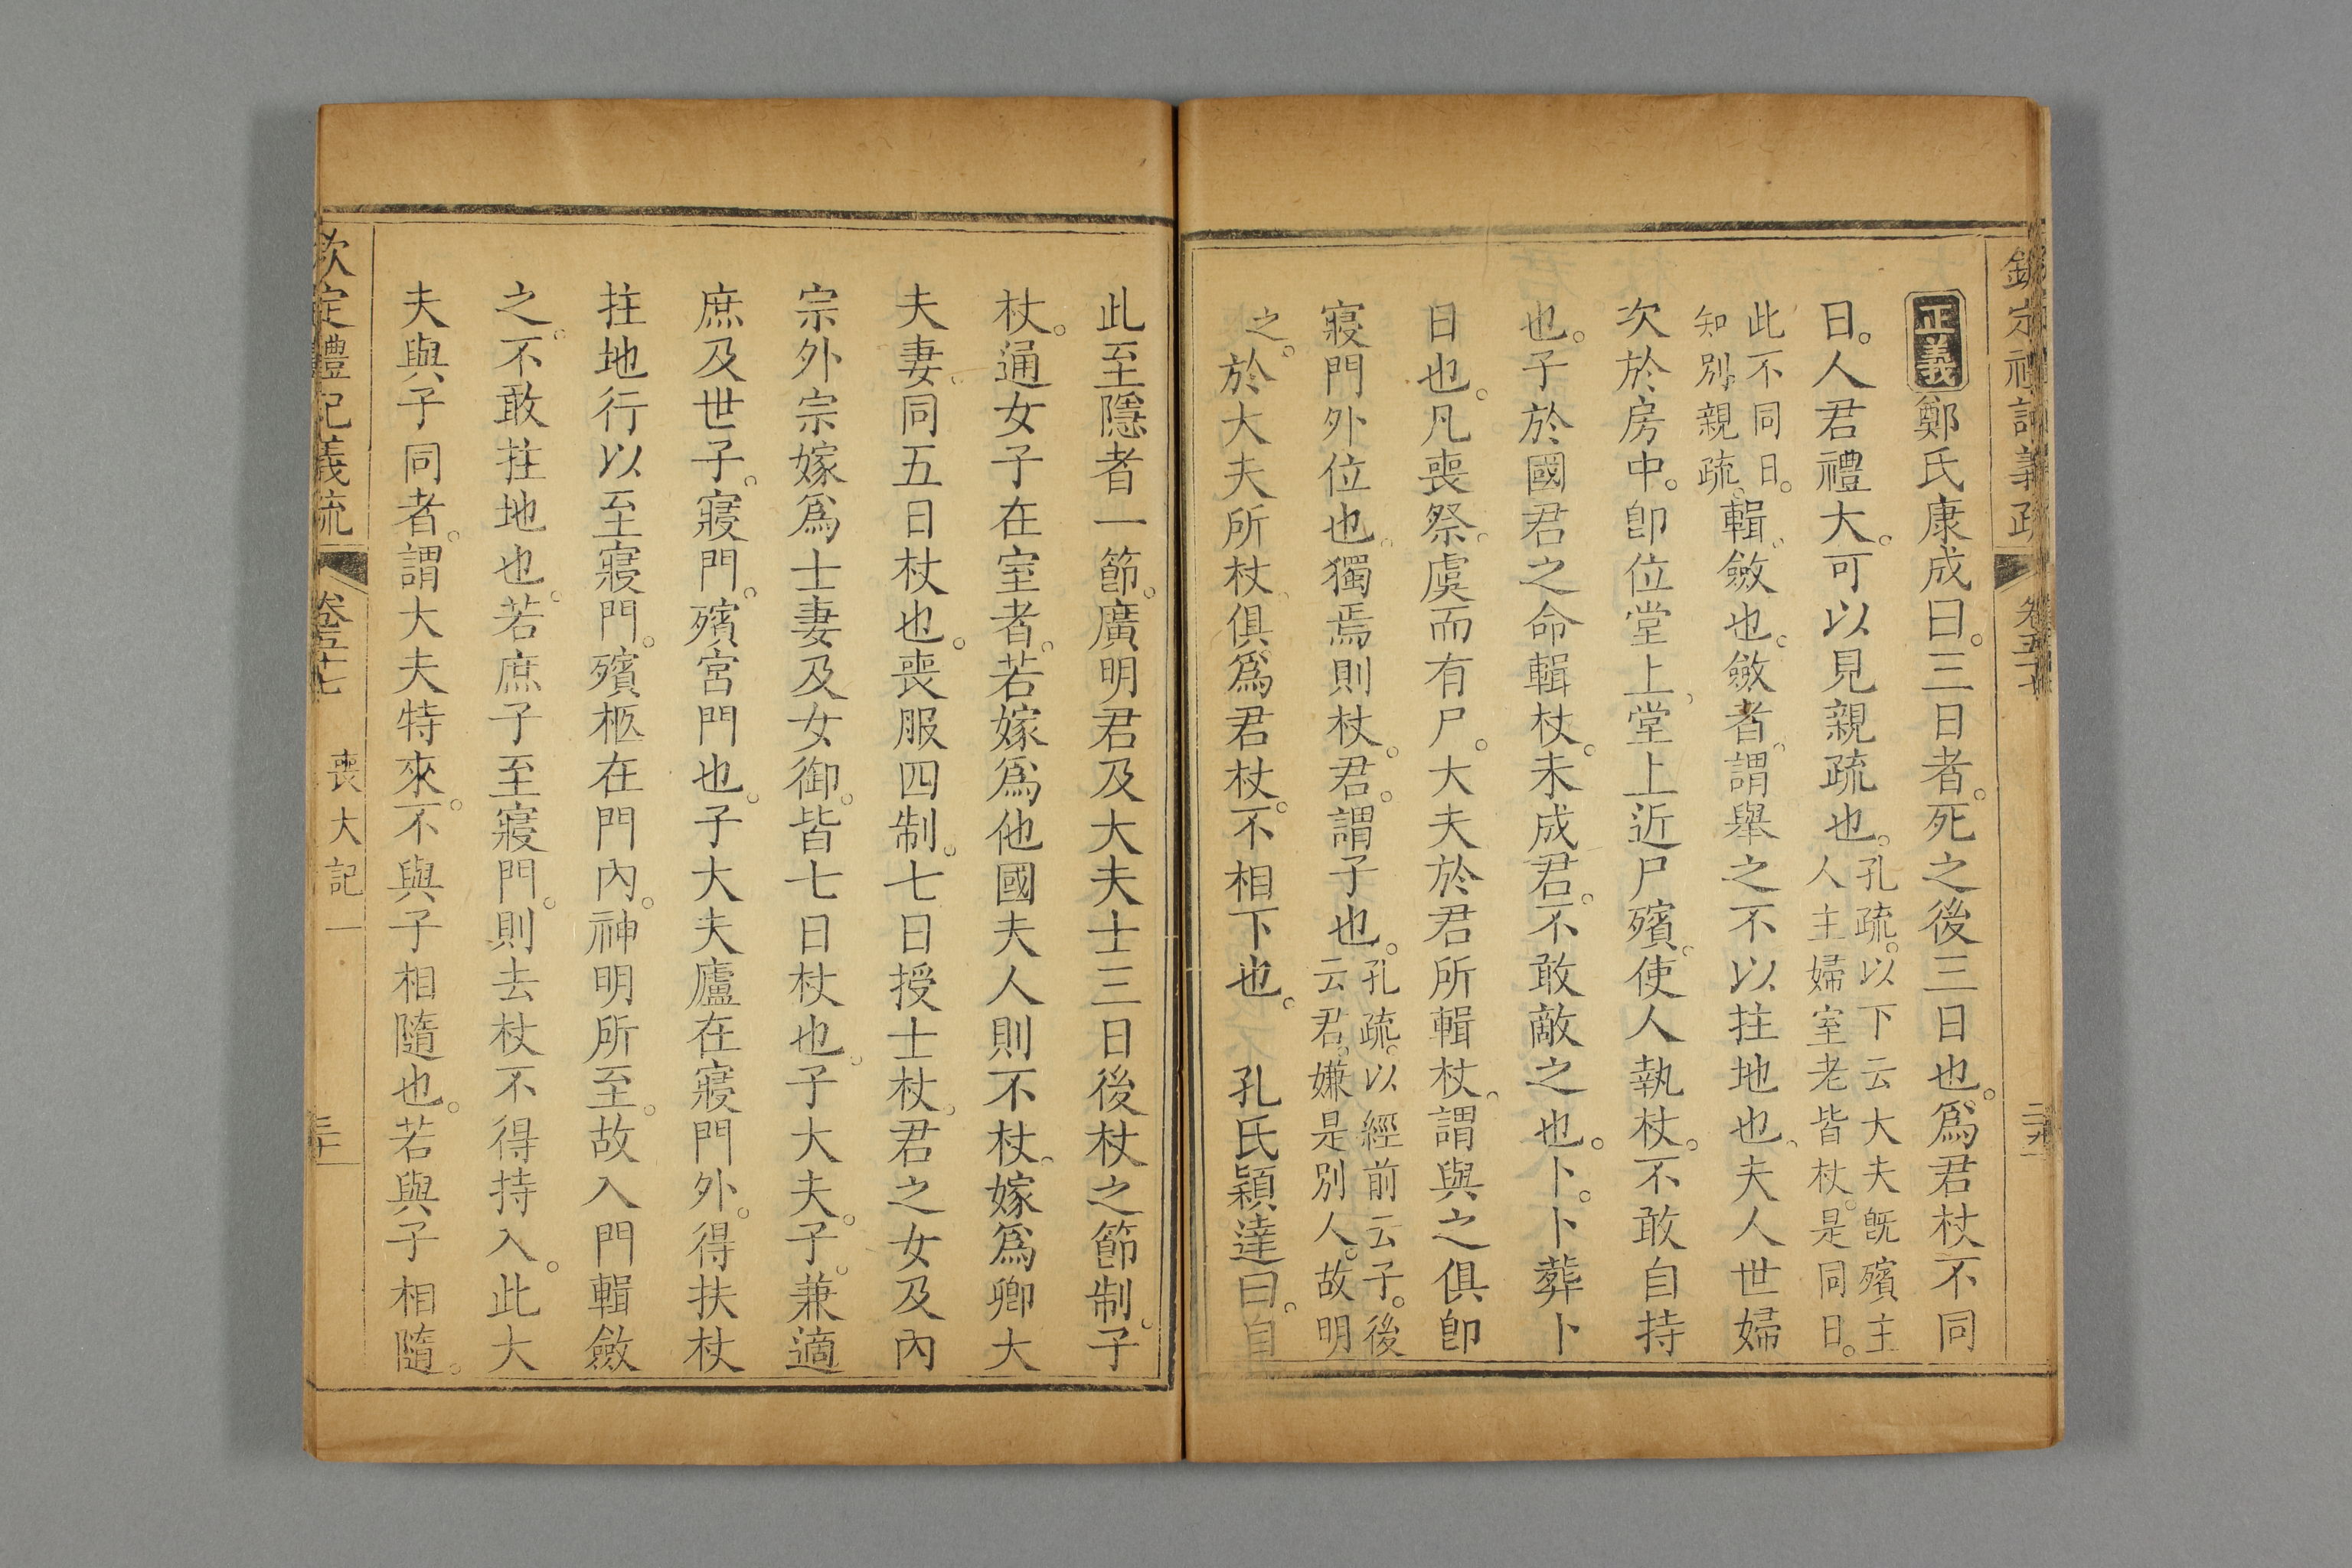 正義鄭氏康成曰。三日者。死之後三日也。爲君杖不同
日。人君禮大。可以見親疏也。孔疏。以下云大夫旣殯主人主婦室老皆杖。是同日。
此不同日。知別親疏。輯。斂也。斂者。謂舉之不以拄地也。夫人世婦
次於房中。卽位堂上、堂上近尸殯。使人執杖。不敢自持
也。子於國君之命輯杖。未成君。不敢敵之也。卜。卜葬卜
日也。凡喪祭。虞而有尸。大夫於君所輯杖。謂與之俱卽
寢門外位也。獨焉則杖。君。謂子也。孔疏。以經前云子。後云君。嫌是別人。故明
之。於大夫所杖。俱爲君杖。不相下也。 孔氏穎達曰。自
此至隱者一節。廣明君及大夫士三日後杖之節制。子
杖。通女子在室者。若嫁爲他國夫人則不杖。嫁爲卿大
夫妻。同五日杖也。喪服四制。七日授士杖。君之女及內
宗外宗嫁爲士妻及女御。皆七日杖也。子大夫。子。兼適
庶及世子。寢門。殯宮門也。子大夫廬在寢門外。得扶杖
拄地行以至寢門。殯柩在門內。神明所至。故入門輯斂
之。不敢拄地也。若庶子至寢門。則去杖不得持入。此大
夫與子同者。謂大夫特來。不與子相隨也。若與子相隨。
欽定禮記義疏 卷五十七 喪大記一 三十